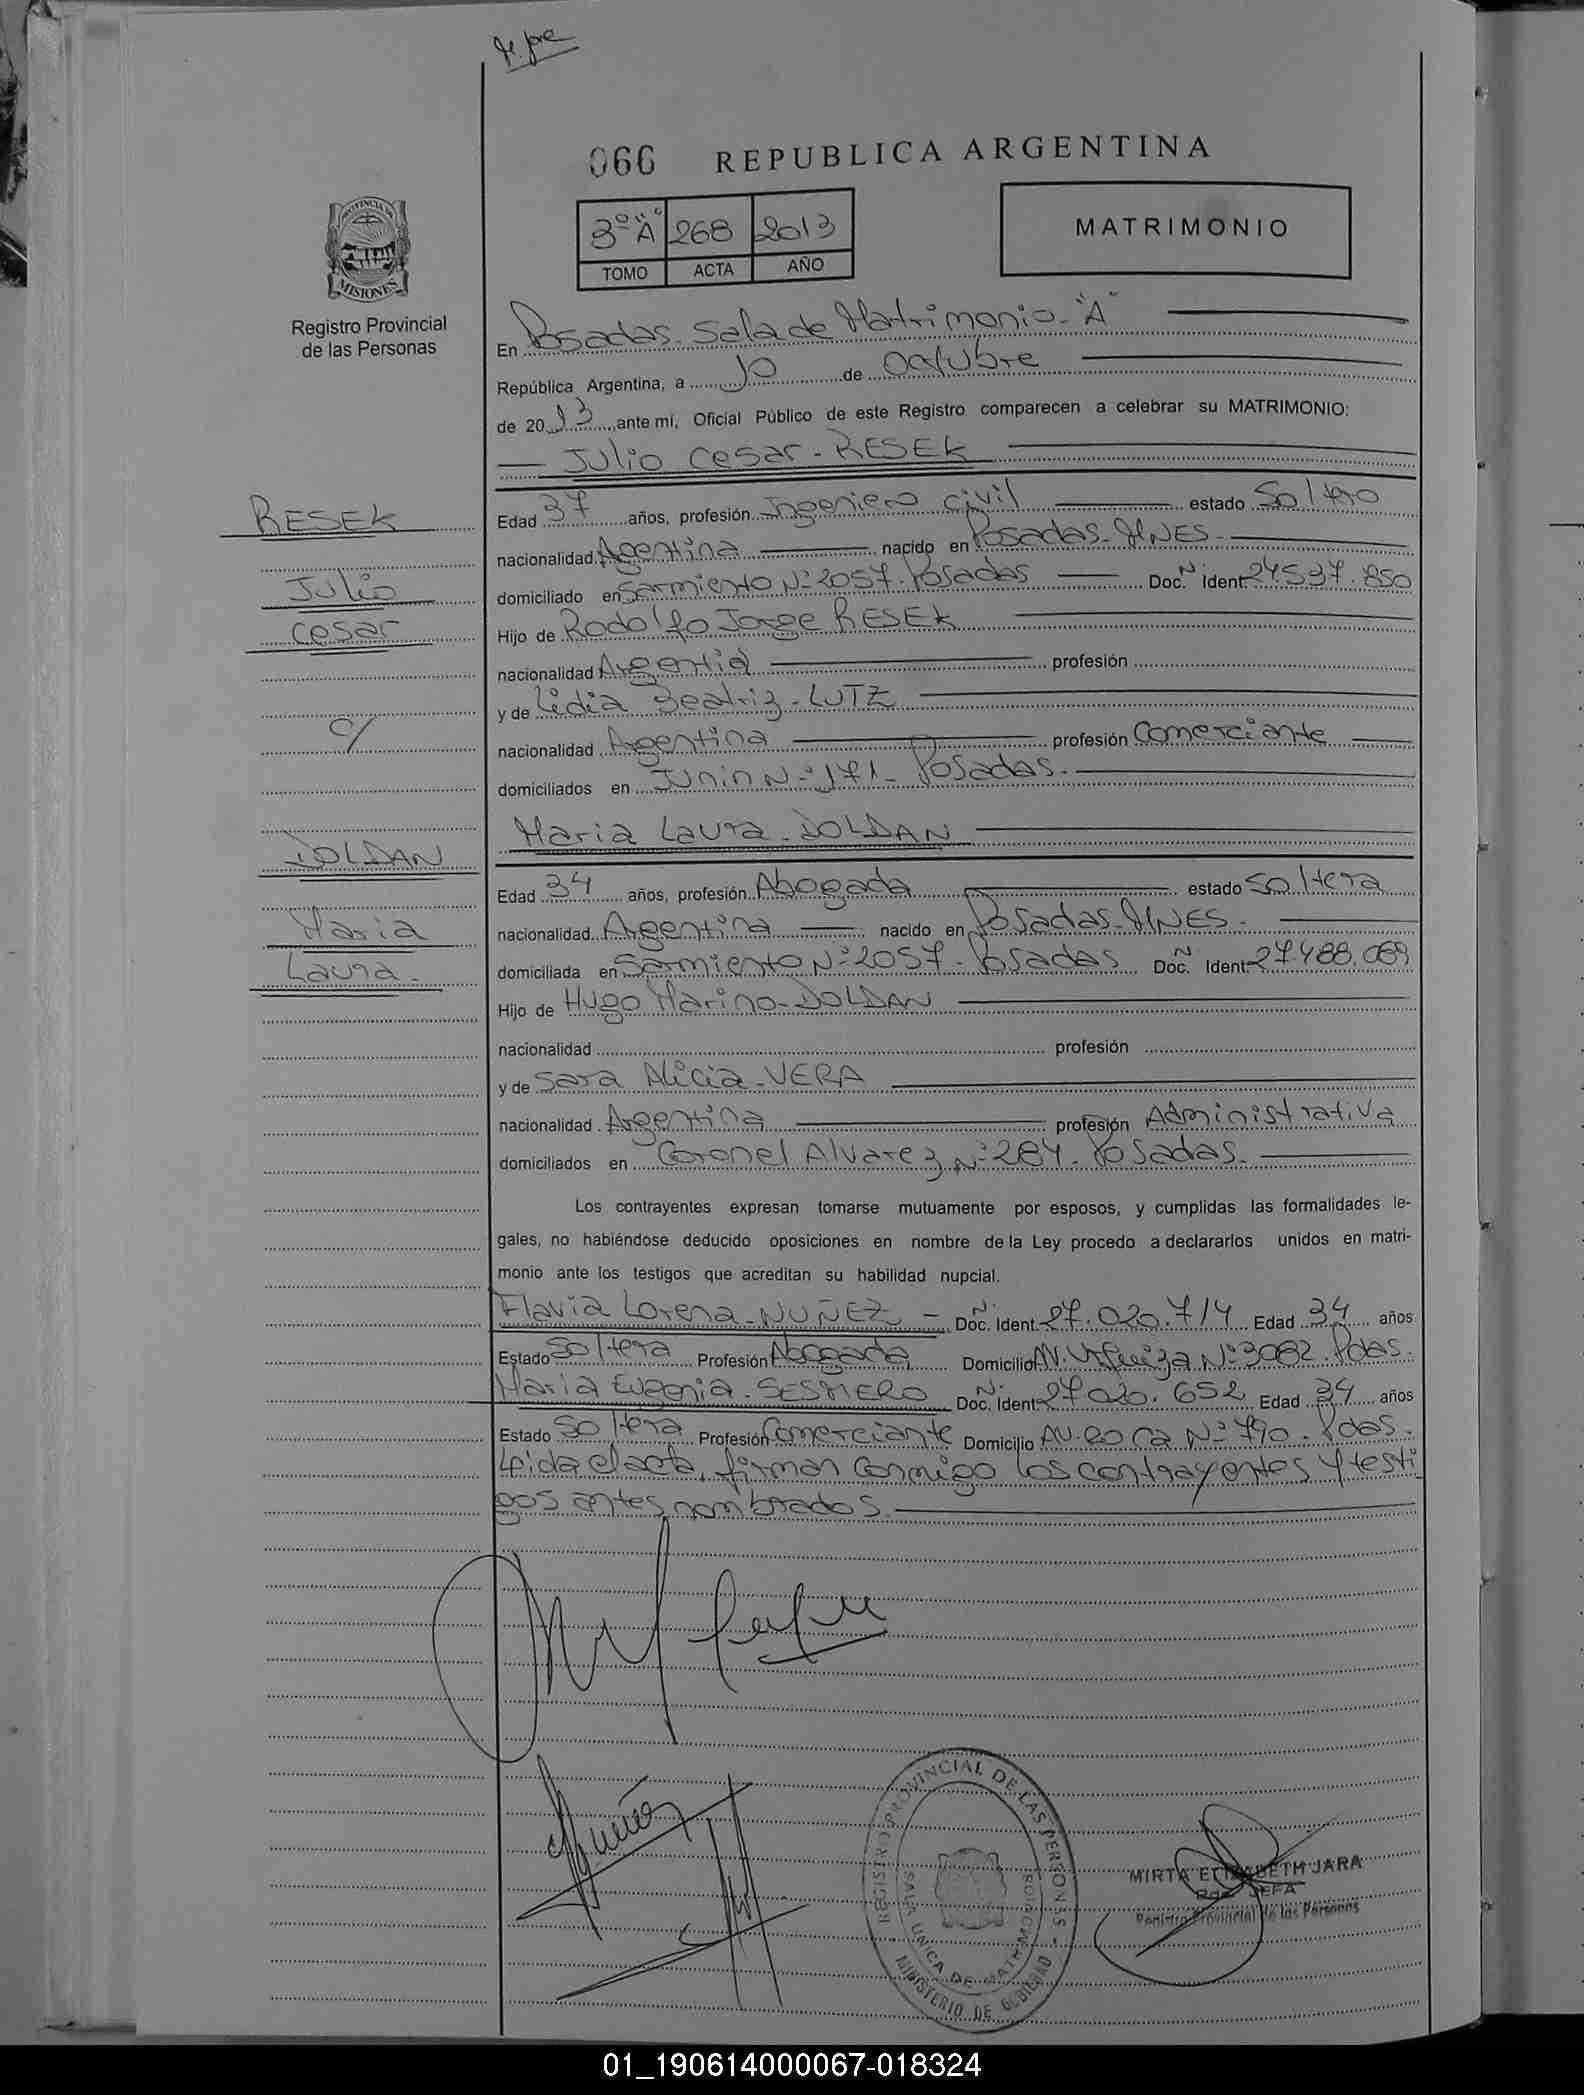 066 REPUBLICA ARGENTINA
3º "A" 268 2013
TOMO ACTA AÑO
MATRIMONIO
MISIONES
Registro Provincial
de las Personas
En Posadas- Sala de Matrimonio- "A"
República Argentina, a 10 de Octubre
de 2013 ante mí, Oficial Público de este Registro comparecen a celebrar su MATRIMONIO:
Julio Cesar- RESEK
RESEK
Julio
Cesar
c/
DOLDAN
Maria
Laura.
Edad 37 años, profesión Ingeniero civil estado Soltero
nacionalidad Agentina nacido en Posadas-MNES-
domiciliado en Sarmiento Nº 2057- Posadas Doc. N Ident. 24537.850
Hijo de Rodolfo Jorge RESEK
nacionalidad Argentia profesión
y de Lidia Beatriz- LUTZ
nacionalidad Argentina profesión Comerciante
domiciliados en Junin N-º 171- Posadas-
Maria Laura- DOLDAN
Edad 34 años, profesión Abogada estado Soltera
nacionalidad Argentina nacido en Posadas-MNES-
domiciliada en Sarmiento Nº 2057- Posadas Doc. N Ident. 27488.069
Hijo de Hugo Marino- DOLDAN
nacionalidad profesión
y de Sara Alicia- VERA
nacionalidad Argentina profesión Administrativa
domiciliados en Coronel Alvarez Nº 284- Posadas-
Los contrayentes expresan tomarse mutuamente por esposos, y cumplidas las formalidades le-
gales, no habiéndose deducido oposiciones en nombre de la Ley procedo a declararlos unidos en matri-
monio ante los testigos que acreditan su habilidad nupcial.
Flavia Lorena- NUÑEZ - Doc. N. Ident. 27.020.714 Edad 34 años
Estado Soltera Profesión Abogada Domicilio AV. Urquiza Nº 3082- Pdas.
Maria Eugenia- SESMERO Doc. N. Ident. 27020.652 Edad 34 años
Estado Soltera Profesión Comerciante Domicilio AV. Roca Nº 790- Pdas.
Leida el acta, firman conmigo los contrayentes y testi
gos antes nombrados.
REGISTRO PROVINCIAL DE LAS PERSONAS
SALA UNICA DE MATRIMONIOS
MINISTERIO DE GOBIERNO
MIRTA ELIZABETH JARA
JEFA
Registro Provincial de las Personas
01_190614000067-018324